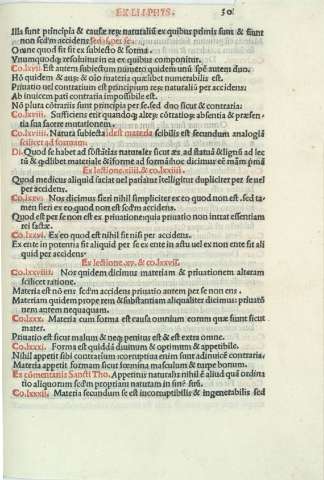 EX LI.I.PHYS. 30.
Illa sunt principia & causæ reꝝ naturaliũ ex quibus primis sunt & fiunt
non scdm accidens sed per se.
Omne quod fit fit ex subiecto & forma.
Vnumquodq; resoluitur in ea ex quibus componitur.
Co.lxvi. Est autem subiectum numero quidem unũ spẽ autem duo.
Hõ quidem & auꝝ & oĩo materia quælibet numerabilis est.
Priuatio uel contrarium est principium reꝝ naturaliũ per accidens.
Ab inuicem pati contraria impossibile est.
Nõ plura cõtrariis sunt principia per se. sed duo sicut & contraria:
Co.lxviii. Sufficiens erit quandoq; alteꝝ cõtrarioꝝ absentia & præsen-
tia sua facere mutationem.
Co.lxviiii. Natura subiecta idest materia scibilis est secundum analogiã
scilicet ad formam.
Di. Quod se habet ad statuã & lignũ ad lec
tũ & materiale & iforme ad formã hoc dicimus eẽ mãm primã
Ex lectione.xiiii. & co.lxxiiii.
Quod medicus aliquid faciat uel patiatur ĩtelligitur dupliciter per se uel
per accidens.
Co.lxxv. Nos dicimus fieri nihil simpliciter ex eo quod non est. sed ta-
men fieri ex eo quod non est scdm accidens.
Quod est per se non est ex priuatione: quia priuatio non intrat essentiam
rei factæ.
Co.lxxvi. Ex eo quod est nihil fit nisi per accidens.
Ex ente in potentia fit aliquid per se ex ente in actu uel ex non ente fit ali
quid per accidens.
Ex lectione.xv. & co.lxxvii.
Co.lxxviii. Nos quidem dicimus materiam & priuationem alteram
scilicet ratione.
Materia est nõ ens scdm accidens priuatio autem per se non ens.
Materiam quidem prope rem & substantiam aliqualiter dicimus: priuatõ
nem autem nequaquam.
Co.lxxx. Materia cum forma est causa omnium eorum quæ fiunt sicut
mater.
Priuatio est sicut malum & neq; penitus est & est extra omne.
Co.lxxxi. Forma est quiddã diuinum & optimum & appetibile.
Nihil appetit sibi contrarium: corruptiua enim sunt adinuicẽ contraria.
Materia appetit formam sicut fœmina masculum & turpe bonum.
Ex cõmentariis Sancti Tho. Appetitus naturalis nihil ẽ aliud quã ordina
tio aliquorum scdm propriam naturam in finẽ suũ.
Co.lxxxii. Materia secundum se est incorruptibilis & ingenerabilis sed